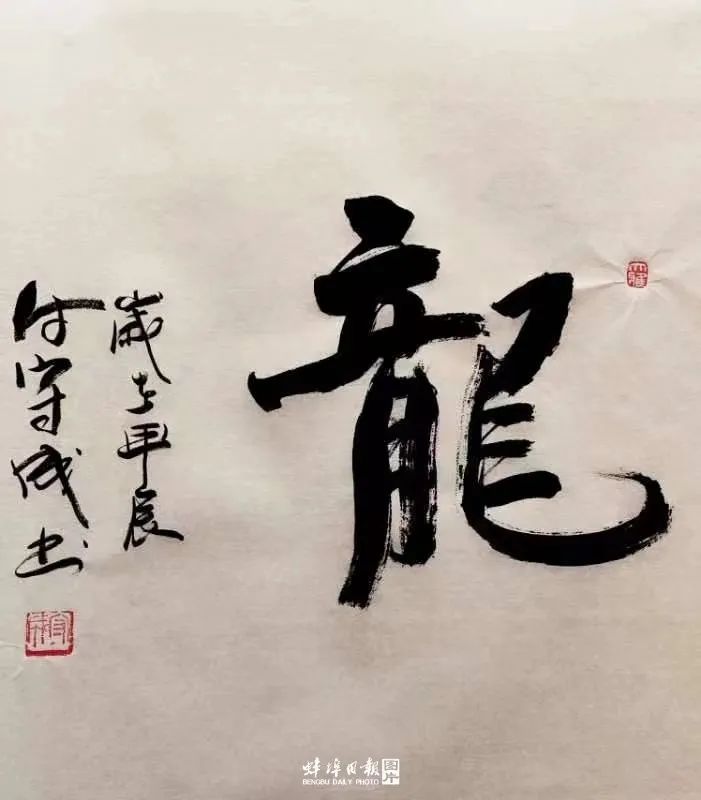 龍
歲在甲辰
付守成书
蚌埠日報 图片
BENGBU DAILY PHOTO